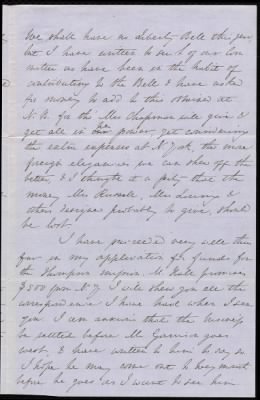 We shall have no Liberty Bell this year
but I have written to such of our Com
mittee as have been in the habit of
contributing to the Bell & have asked
for money to add to this obtained at
N.Y. for tho' Mrs Chapman will give &
get all in her power, yet considering
the extra expenses at N York, the more
freight elegance, we can show off the
better, & I thought it a pity that the
money Mrs Russell, Mrs Loring &
others designed probably to give, should
be lost.
I have proceeded very well thus
far in my application for funds for
the Thompson mission. M Hall promises
$500 from N.Y. I will show you all the
correspondence I have had when I see
you. I am anxious that the business
be settled before Mr Garrison goes
west, & have written to him to say so.
I hope he may come out to
before he goes as I want to see him